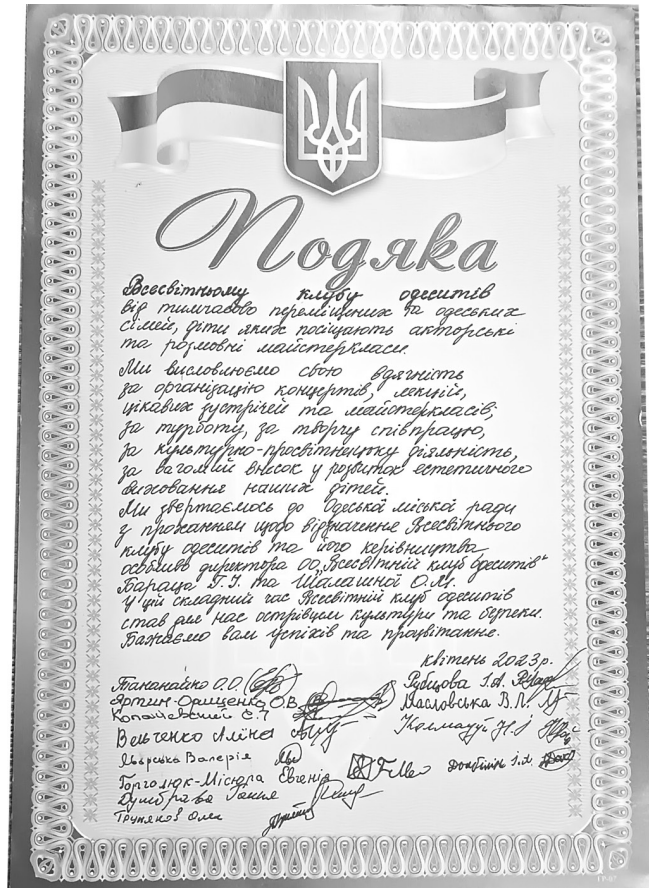 Подяка
Всесвітньому клубу одеситів
від тимчасово переміщених та одеських
сімей, діти яких посіщають акторські
та розмовні майстеркласи.
Ми висловлюємо свою вдячність
за організацію концертів, лекцій,
цікавих зустрічей та майстеркласів;
за турботу, за творчу співпрацю,
за культурно-просвітницьку діяльність,
за вагомий внесок у розвиток естетичного
виховання наших дітей.
Ми звертаємось до Одеської міської ради
з проханням щодо відзначення Всесвітнього
клубу одеситів та його керівництва,
особливо директора ОО "Всесвітній клуб одеситів"
Бараца Г.І. та Шалашної О.М.
У цій складний час Всесвітній клуб одеситів
став для нас острівцем культури та безпеки.
Бажаємо вам успіхів та процвітання.
квітень 2023р.
Тананайко О.О. Рубцова І.А.
Орищенко О.В. Масловська В.П.
Вельченко Аліна
Яворська Валерія
Євгенія